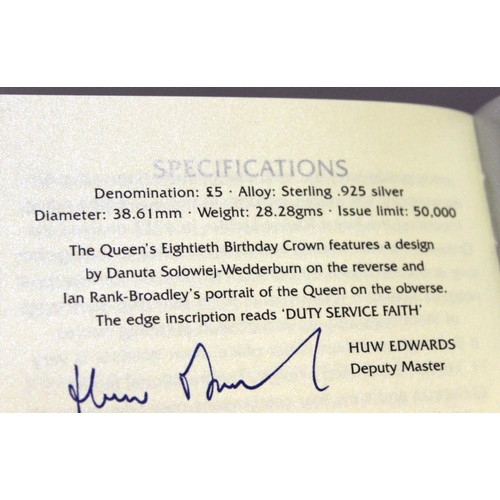 SPECIFICATIONS
Denomination: £5 · Alloy: Sterling .925 silver
Diameter: 38.61mm · Weight: 28.28gms · Issue limit: 50,000
The Queen's Eightieth Birthday Crown features a design
by Danuta Solowiej-Wedderburn on the reverse and
Ian Rank-Broadley's portrait of the Queen on the obverse.
The edge inscription reads 'DUTY SERVICE FAITH'
HUW EDWARDS
Deputy Master